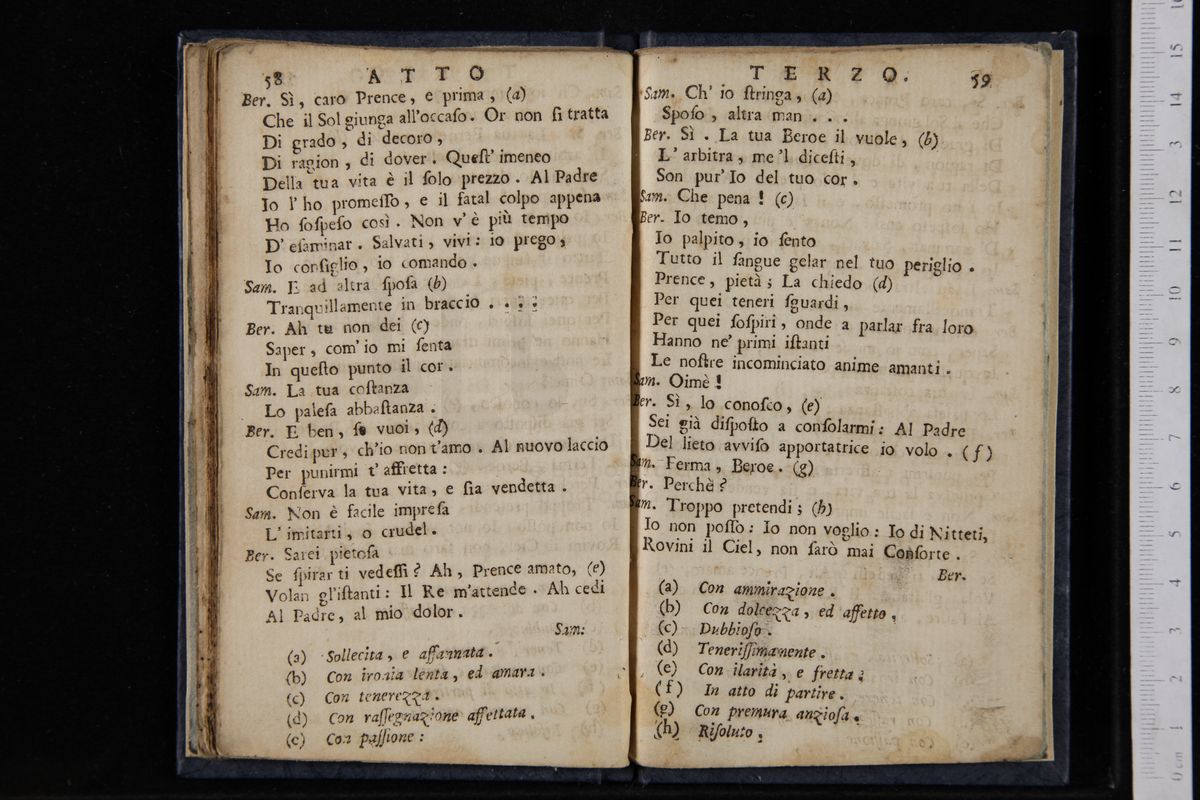 58 ATTO
Ber. Sì, caro Prence, e prima, (a)
Che il Sol giunga all'occaſo. Or non ſi tratta
Di grado, di decoro,
Di ragion, di dover. Queſt' imeneo
Della tua vita è il ſolo prezzo. Al Padre
Io l' ho promeſſo, e il fatal colpo appena
Ho ſoſpeſo così. Non v' è più tempo
D' eſaminar. Salvati, vivi: io prego,
Io conſiglio, io comando.
Sam. E ad altra ſpoſa (b)
Tranquillamente in braccio . . . .
Ber. Ah tu non dei (c)
Saper, com' io mi ſenta
In queſto punto il cor.
Sam. La tua coſtanza
Lo paleſa abbaſtanza.
Ber. E ben, ſe vuoi, (d)
Credi pur, ch'io non t'amo. Al nuovo laccio
Per punirmi t' affretta:
Conſerva la tua vita, e ſia vendetta.
Sam. Non è facile impreſa
L' imitarti, o crudel.
Ber. Sarei pietoſa
Se ſpirar ti vedeſſi? Ah, Prence amato, (e)
Volan gl'iſtanti: Il Re m'attende. Ah cedi
Al Padre, al mio dolor.
Sam:
(a) Sollecita, e affannata.
(b) Con ironia lenta, ed amara.
(c) Con tenerezza.
(d) Con raſſegnazione affettata.
(e) Con paſſione:
TERZO. 59
Sam. Ch' io ſtringa, (a)
Spoſo, altra man . . .
Ber. Sì. La tua Beroe il vuole, (b)
L' arbitra, me 'l diceſti,
Son pur' Io del tuo cor.
Sam. Che pena! (c)
Ber. Io temo,
Io palpito, io ſento
Tutto il ſangue gelar nel tuo periglio.
Prence, pietà; La chiedo (d)
Per quei teneri ſguardi,
Per quei ſoſpiri, onde a parlar fra loro
Hanno ne' primi iſtanti
Le noſtre incominciato anime amanti.
Sam. Oimè!
Ber. Sì, lo conoſco, (e)
Sei già diſpoſto a conſolarmi: Al Padre
Del lieto avviſo apportatrice io volo. (f)
Sam. Ferma, Beroe. (g)
Ber. Perchè?
Sam. Troppo pretendi; (h)
Io non poſſo: Io non voglio: Io di Nitteti,
Rovini il Ciel, non ſarò mai Conſorte.
Ber.
(a) Con ammirazione.
(b) Con dolcezza, ed affetto.
(c) Dubbioſo.
(d) Teneriſſimamente.
(e) Con ilarità, e fretta;
(f) In atto di partire.
(g) Con premura anzioſa.
(h) Riſoluto.
0 cm 1 2 3 4 5 6 7 8 9 10 11 12 13 14 15